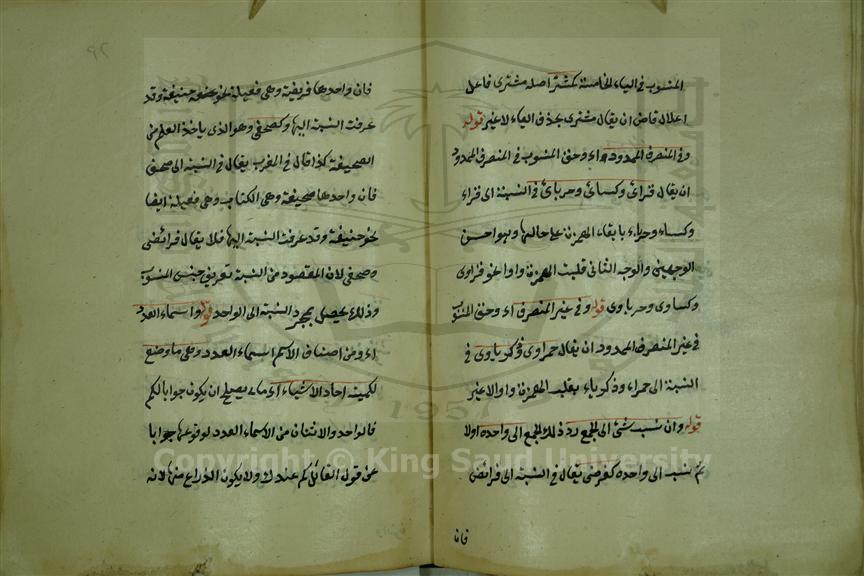 المنسوب في الياء الخامسة كمشتر اصله مشترى فاعل
اعلال قاض ان يقال مشترى بحذف الياء لا غير قوله
وفي المنصرف الممدود اه وحق المنسوب في المنصرف الممدود
ان يقال قرائ وكسائ وحربائ في النسبة الى قراء
وكساء وحرباء بابقاء الهمزة على حالها وهو احسن
الوجهين والوجه الثاني قلبت الهمزة واوا نحو قراوى
وكساوى وحرباوى قوله وفي غير المنصرف اه وحق المنسوب
في غير المنصرف الممدود ان يقال حمراوى وذكرياوى في
النسبة الى حمراء وذكرياء بقلب الهمزة واوا لا غير
قوله وان نسب شئ الى الجمع رد ذلك الجمع الى واحده اولا
ثم نسب الى واحده كفرضى يقال في النسبة الى فرائض
فان
فان واحدها فريضة وهي فعيلة نحو حنيفة وقد
عرفت النسبة اليها وكصحفى وهو الذى ياخذ العلم من
الصحيفة كذا قال في المغرب يقال في النسبة الى صحف
فان واحدها صحيفة وهي الكتاب وهي فعيلة ايضا
نحو حنيفة وقد عرفت النسبة اليها فلا يقال فرائضى
وصحفى لان المقصود من النسبة تعريف جنس المنسوب
وذلك يحصل بمجرد النسبة الى الواحد قوله واسماء العدد
اه ومن اصناف الاسم اسماء العدد وهي ما وضع
لكمية احاد الاشياء اى ما يصلح ان يكون جوابا لكم
فالواحد والاثنان من الاسماء العدد لوقوعها جوابا
عن قول القائل كم عندك ولا يكون الذراع منها لانه
Copyright © King Saud University
1957